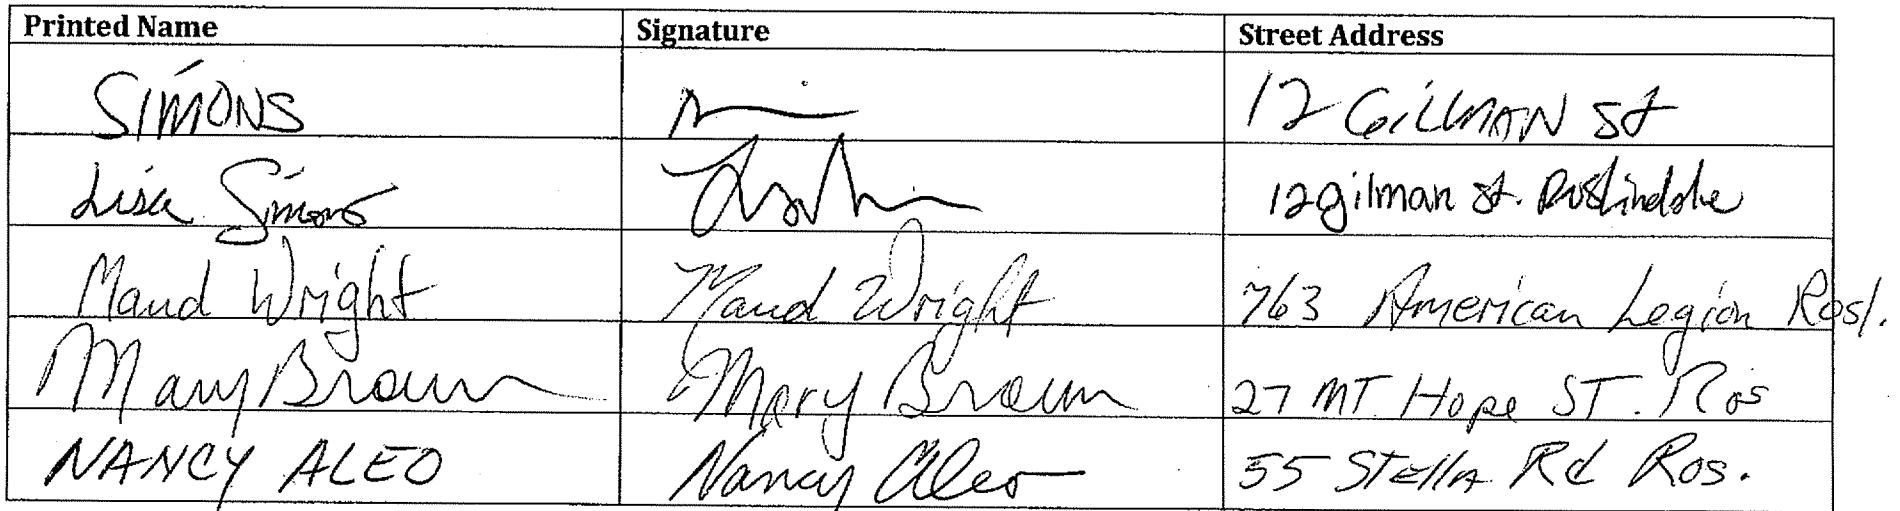 Printed Name Signature Street Address
SIMONS 12 GILMAN St
Lisa Simons 12 gilman St. Roslindale
Maud Wright Maud Wright 763 American Legion Rosl.
Mary Brown Mary Brown 27 MT Hope ST. Ros
NANCY ALEO Nancy Aleo 55 Stella Rd Ros.